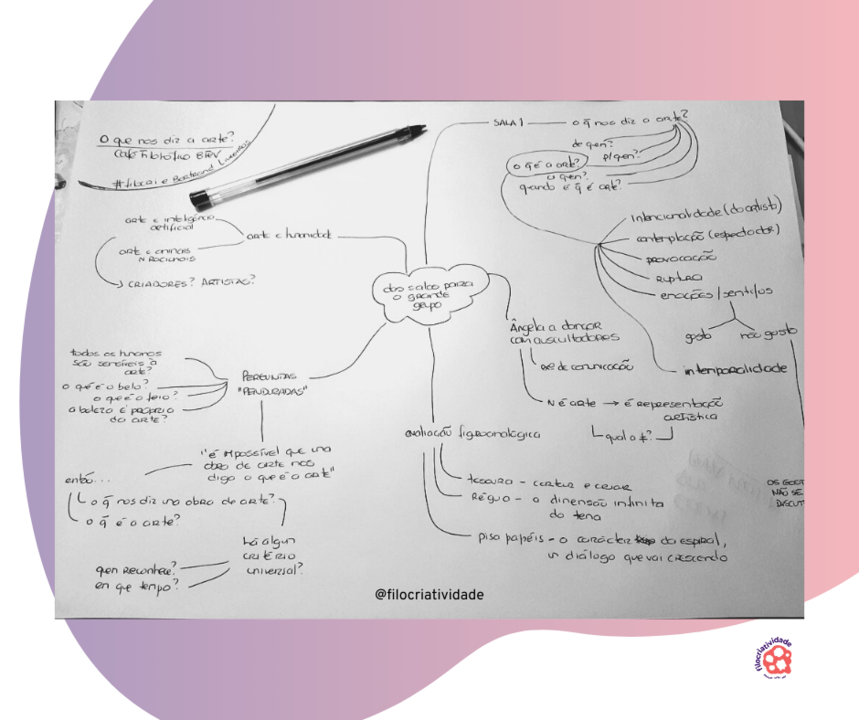 O que nos diz a arte?
Café Filosófico BRV
#filocri e Bertrand Livreiros
SALA 1
o q̃ nos diz a arte?
de quem?
p/ quem?
a quem?
o q̃ é a arte?
quando é q̃ é arte?
intencionalidade (do artista)
contemplação (espectador)
provocação
ruptura
emoções / sentidos
gosto
não gosto
intemporalidade
OS GOST
NÃO SE
DISCUT
dos salas para
o grande
grupo
arte e humanidade
arte e inteligência
artificial
arte e animais
ñ racionais
CRIADORES? ARTISTAS?
Ângela a dançar
com auscultadores
arte de comunicação
Ñ é arte → é representação
artística
qual o ≠?
PERGUNTAS
"PENDURADAS"
todos os humanos
são sensíveis à
arte?
o que é o belo?
o que é o feio?
a beleza é próprio
da arte?
"é impossível que uma
obra de arte nos
diga o que é a arte"
então...
o q̃ nos diz uma obra de arte?
o q̃ é a arte?
há algum
critério
universal?
quem reconhece?
em que tempo?
avaliação figroanalógica
tesoura - cortar e criar
Régua - a dimensão infinita
do tema
pisa papéis - o carácter da espiral,
um diálogo que vai crescendo
@filocriatividade
filocriatividade